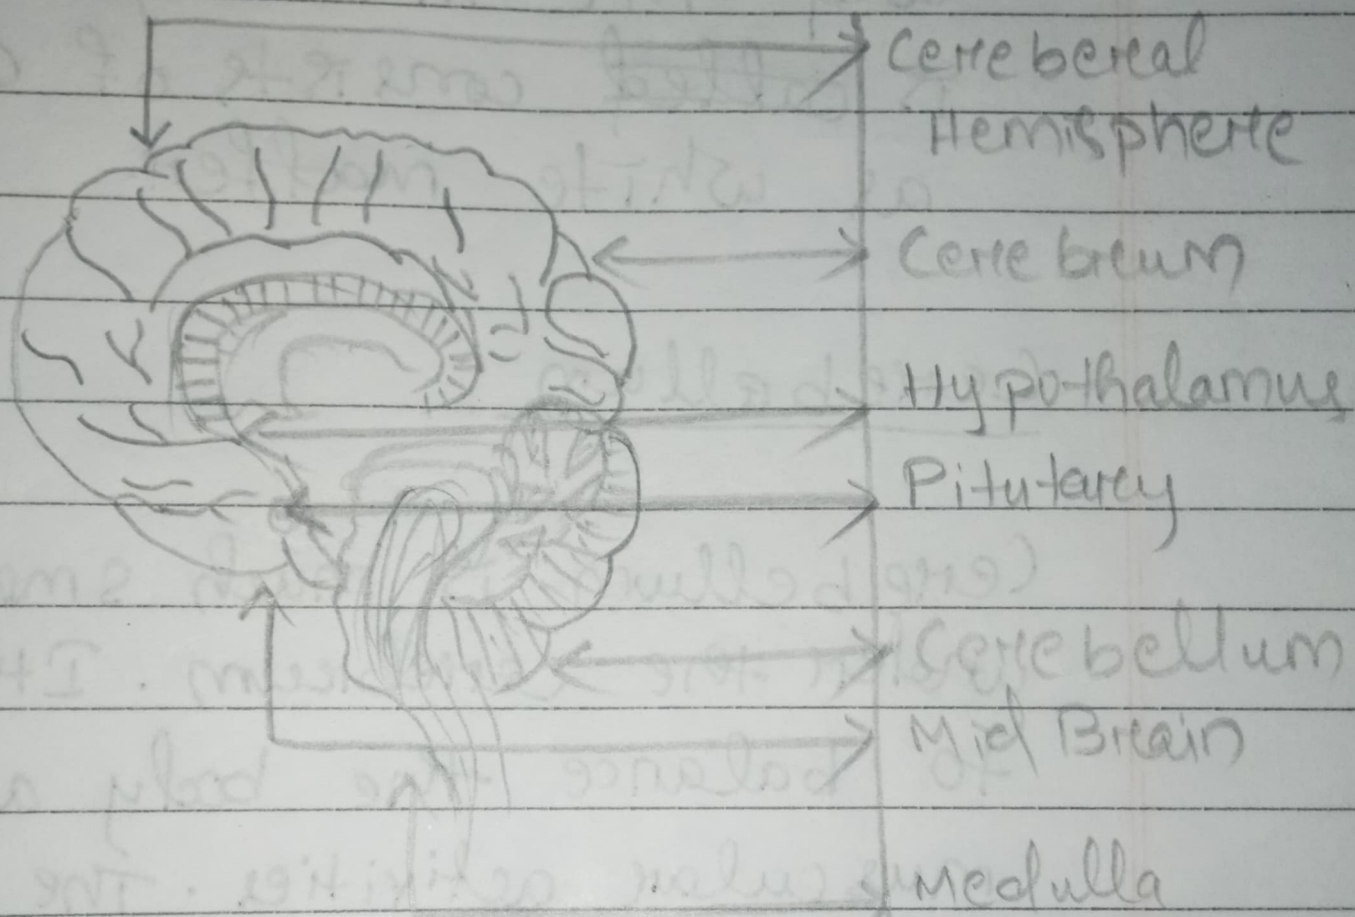 Cereberal
Hemisphere
Cerebrum
Hypothalamus
Pitutary
Cerebellum
Mid Brain
Medulla